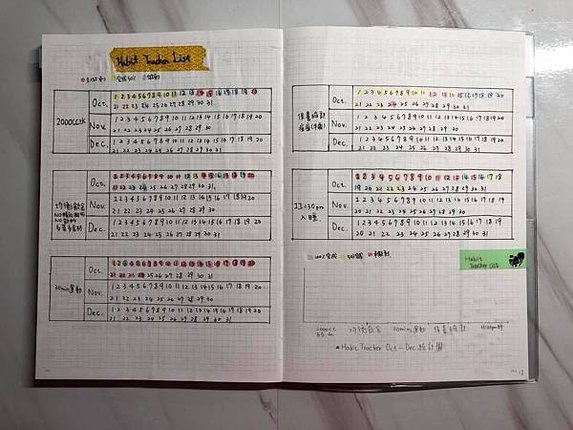 Habit Tracker List
2000CC水
Oct.
1 2 3 4 5 6 7 8 9 10 11 12 13 14 15 16 17 18 19 20
21 22 23 24 25 26 27 28 29 30 31.
Nov.
1 2 3 4 5 6 7 8 9 10 11 12 13 14 15 16 17 18 19 20
21 22 23 24 25 26 27 28 29 30
Dec.
1 2 3 4 5 6 7 8 9 10 11 12 13 14 15 16 17 18 19 20
21 22 23 24 25 26 27 28 29 30 31
均衡飲食
Oct.
1 2 3 4 5 6 7 8 9 10 11 12 13 14 15 16 17 18 19 20
21 22 23 24 25 26 27 28 29 30 31.
Nov.
1 2 3 4 5 6 7 8 9 10 11 12 13 14 15 16 17 18 19 20
21 22 23 24 25 26 27 28 29 30
Dec.
1 2 3 4 5 6 7 8 9 10 11 12 13 14 15 16 17 18 19 20
21 22 23 24 25 26 27 28 29 30 31
30min運動
Oct.
1 2 3 4 5 6 7 8 9 10 11 12 13 14 15 16 17 18 19 20
21 22 23 24 25 26 27 28 29 30 31
Nov.
1 2 3 4 5 6 7 8 9 10 11 12 13 14 15 16 17 18 19 20
21 22 23 24 25 26 27 28 29 30
Dec.
1 2 3 4 5 6 7 8 9 10 11 12 13 14 15 16 17 18 19 20
21 22 23 24 25 26 27 28 29 30 31
Oct.
1 2 3 4 5 6 7 8 9 10 11 12 13 14 15 16 17 18 19 20
21 22 23 24 25 26 27 28 29 30 31.
Nov.
1 2 3 4 5 6 7 8 9 10 11 12 13 14 15 16 17 18 19 20
21 22 23 24 25 26 27 28 29 30
Dec.
1 2 3 4 5 6 7 8 9 10 11 12 13 14 15 16 17 18 19 20
21 22 23 24 25 26 27 28 29 30 31
入睡
Oct.
1 2 3 4 5 6 7 8 9 10 11 12 13 14 15 16 17 18
19 20 21 22 23 24 25 26 27 28 29 30 31
Nov.
1 2 3 4 5 6 7 8 9 10 11 12 13 14 15 16 17 18 19
20 21 22 23 24 25 26 27 28 29 30
Dec.
1 2 3 4 5 6 7 8 9 10 11 12 13 14 15 16 17 18 19
20 21 22 23 24 25 26 27 28 29 30 31
Habit
Tracker List
均衡飲食 30min運動
Habit Tracker Oct - Dec 統計圖